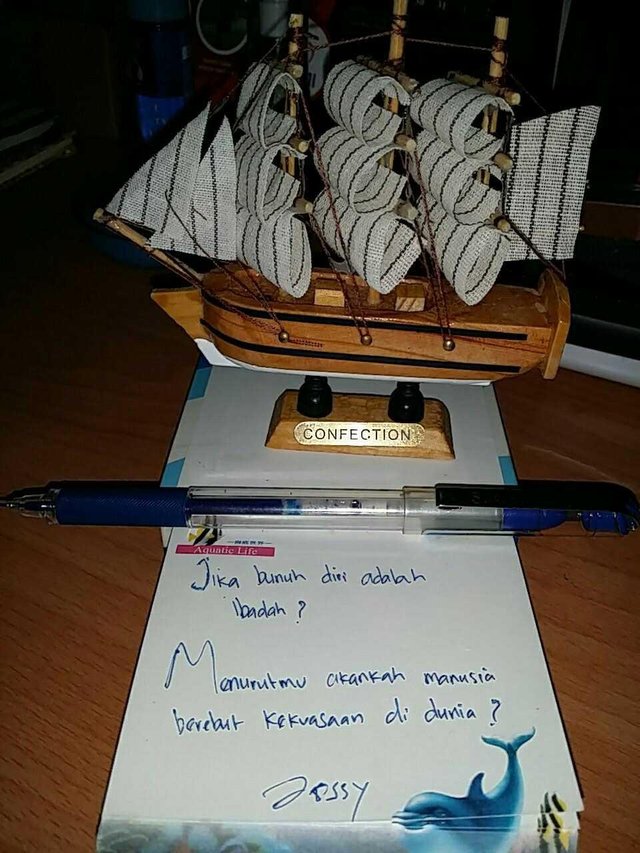 CONFECTION
Aquatic Life
Jika bunuh diri adalah
ibadah ?
Menurutmu akankah manusia
berebut kekuasaan di dunia ?
Jessy